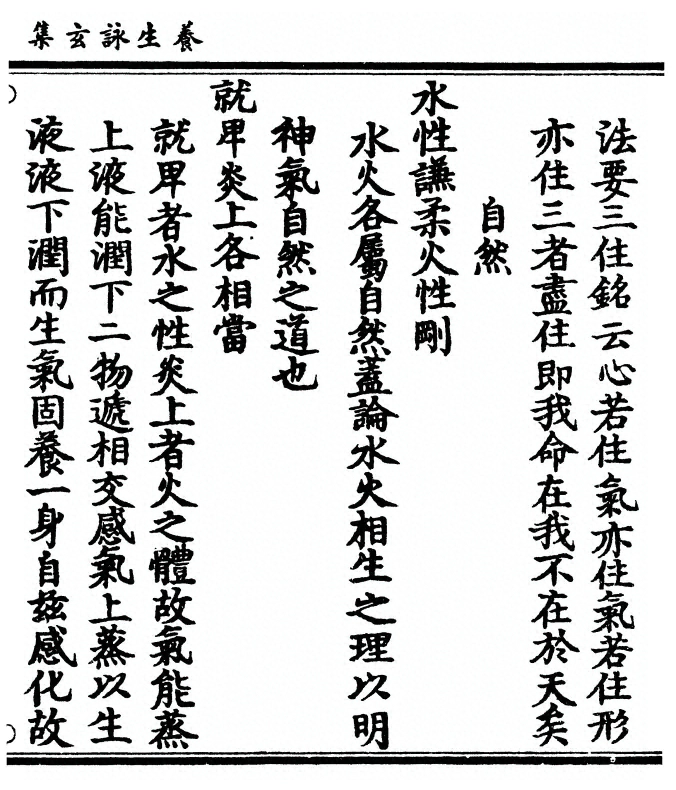 養生詠玄集
法要三住銘云心若住氣亦住氣若住形
亦住三者盡住即我命在我不在於天矣
自然
水性謙柔火性剛
水火各屬自然蓋論水火相生之理以明
神氣自然之道也
就卑炎上各相當
就卑者水之性炎上者火之體故氣能蒸
上液能潤下二物遞相交感氣上蒸以生
液液下潤而生氣固養一身自茲感化故